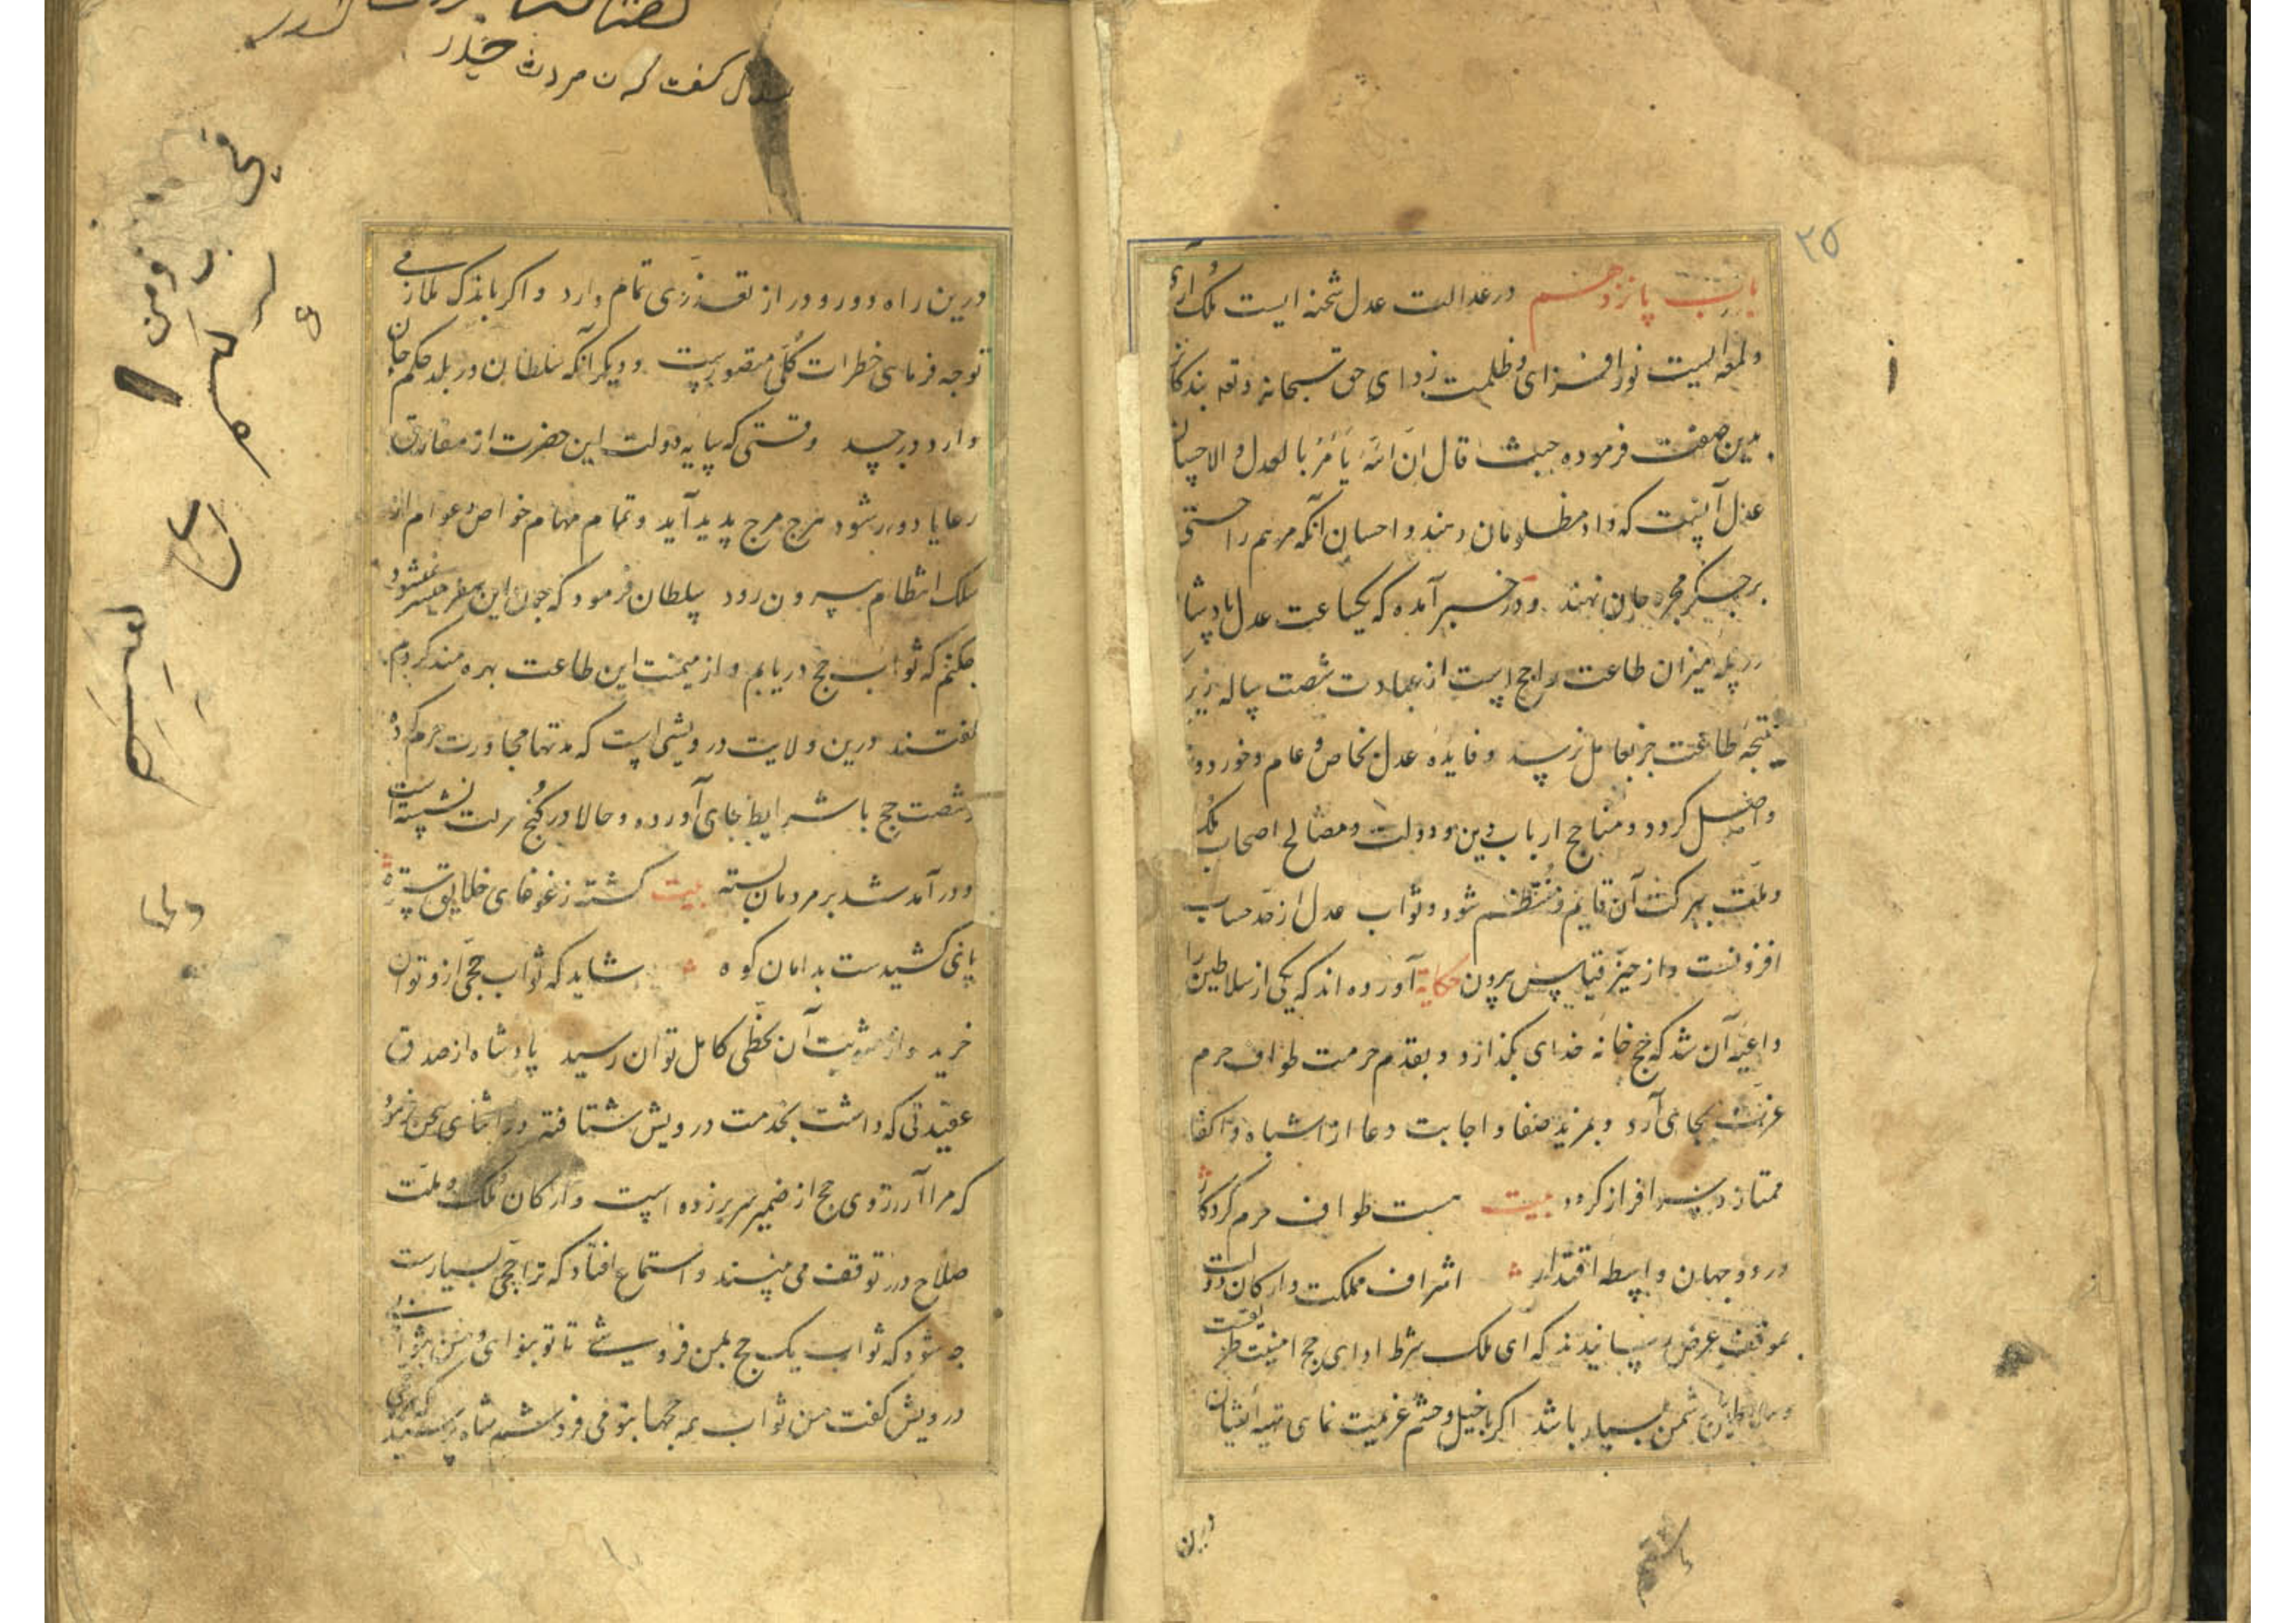 ۲۵
باب پانزدهم در عدالت عدل شحنه ایست ملک آرای
و لمعه ایست نور افزای و ظلمت زدای حق سبحانه و تعه بندکانرا
بدین صفت فرموده حیث قال ان الله یأمر بالعدل و الاحسان
عدل آنست که داد مظلومان دهند و احسان آنکه مرهم راحتی
بر جکر مجروحان نهند و در خبر آمده که یکساعت عدل پادشاه
در پله میزان طاعت راجح است از عبادت شصت ساله زیرا
نتیجه طاعت جز بعامل نرسد و فایده عدل بخاص و عام و خورد و
واصل کردد و مناهج ارباب دین و دولت و مصالح اصحاب ملک
و ملت ببرکت آن قایم و منتظم شود و ثواب عدل از حد حساب
افزونست و از حیز قیاس بیرون حکایة آورده اند که یکی از سلاطین را
داعیه آن شد که حج خانه خدای بکذارد و بقدم حرمت طواف حرم
عزت بجای آرد و بمزید صفا و اجابت دعا از اشباه و اکفا
ممتاز و سرافراز کردد بیت هست طواف حرم کردکار
در دو جهان واسطه اقتدار اشراف مملکت و ارکان دولت
بموقف عرض رسانیدند که ای ملک شرط ادای حج امنیت طریقست
دشمن بسیار باشد اکر با خیل و حشم عزیمت نمای تهیه ایشان
درین
کفت که ن مردت حیدر
درین راه دور و دراز تعذری تمام دارد و اکر باندک ملازمی
توجه فرمای خطرات کلی متصورست و دیکر آنکه سلطان در بلد حکم جان
دارد در جسد وقتی که سایه دولت این حضرت از مفارق
رعایا دور شود هرج مرج پدید آید و تمام مهام خواص و عوام از
سلک انتظام بیرون رود سلطان فرمود که چون این سفر میسر نمیشود
چکنم که ثواب حج دریابم و از میمنت این طاعت بهره مند کردم
کفتند درین ولایت درویشی است که مدتها مجاورت حرم کرده
و شصت حج با شرایط بجای آورده و حالا در کنج عزلت نشسته است
و در آمد شد بر مردمان بسته بیت کشته ز غوغای خلایق ستوه
پای کشیدست بدامان کوه شاید که ثواب حجی ازو توان
خرید و از مثوبت آن بحظی کامل توان رسید پادشاه از صدق
عقیدتی که داشت بخدمت درویش شتافته در اثنای سخن فرمود
که مرا آرزوی حج از ضمیر سر برزده است و ارکان ملک و ملت
صلاح در توقف می بینند و استماع افتاد که ترا حج بسیارست
چه شود که ثواب یک حج بمن فروشی تا تو بنوای و من بثوابی
درویش کفت من ثواب همه حجها بتو می فروشم شاه پرسید که